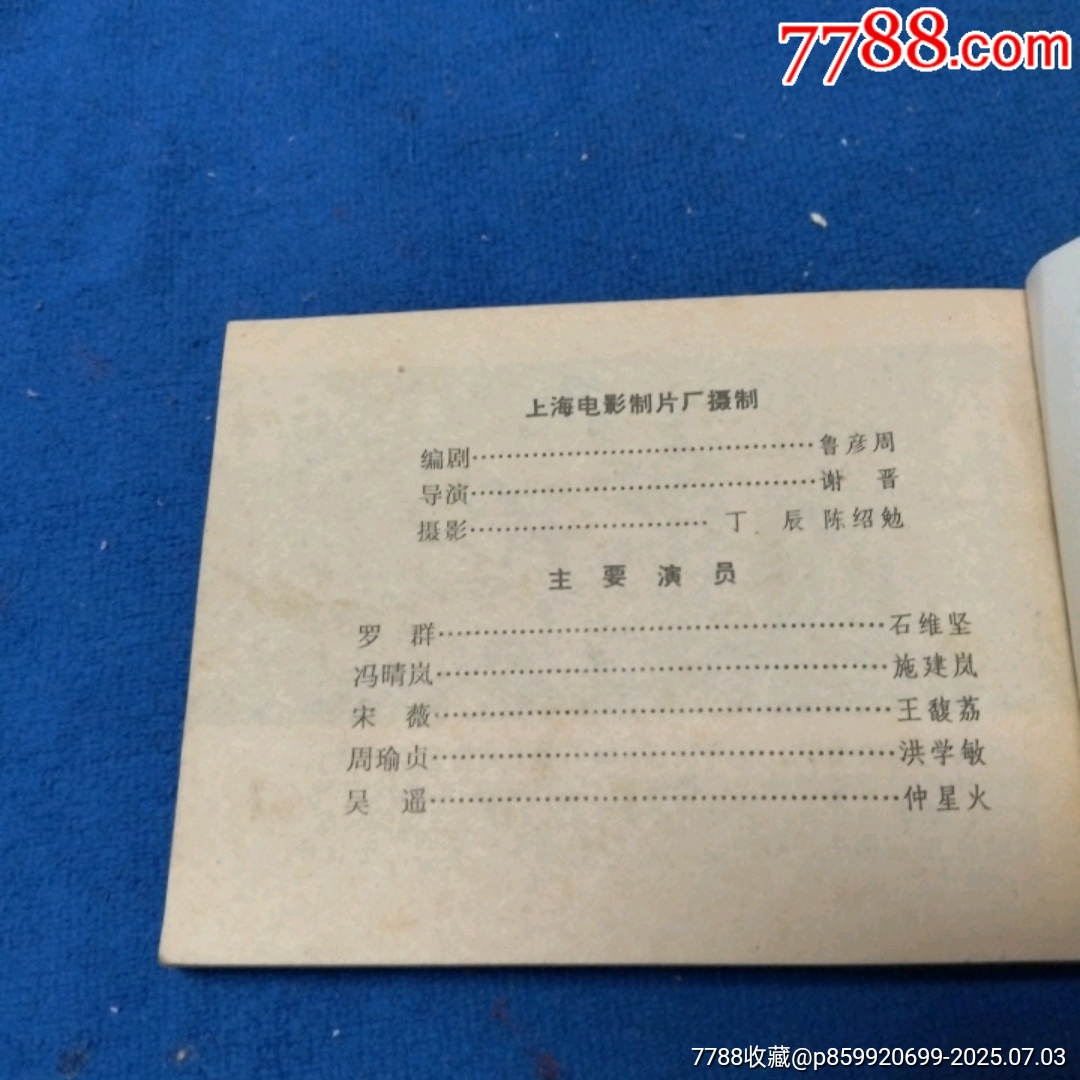 7788.com
上海电影制片厂摄制
编剧……………………………………鲁彦周
导演……………………………………谢 晋
摄影…………………………丁 辰 陈绍勉
主 要 演 员
罗 群………………………………………………石维坚
冯晴岚………………………………………………施建岚
宋 薇………………………………………………王馥荔
周瑜贞………………………………………………洪学敏
吴 遥………………………………………………仲星火
7788收藏@p859920699-2025.07.03